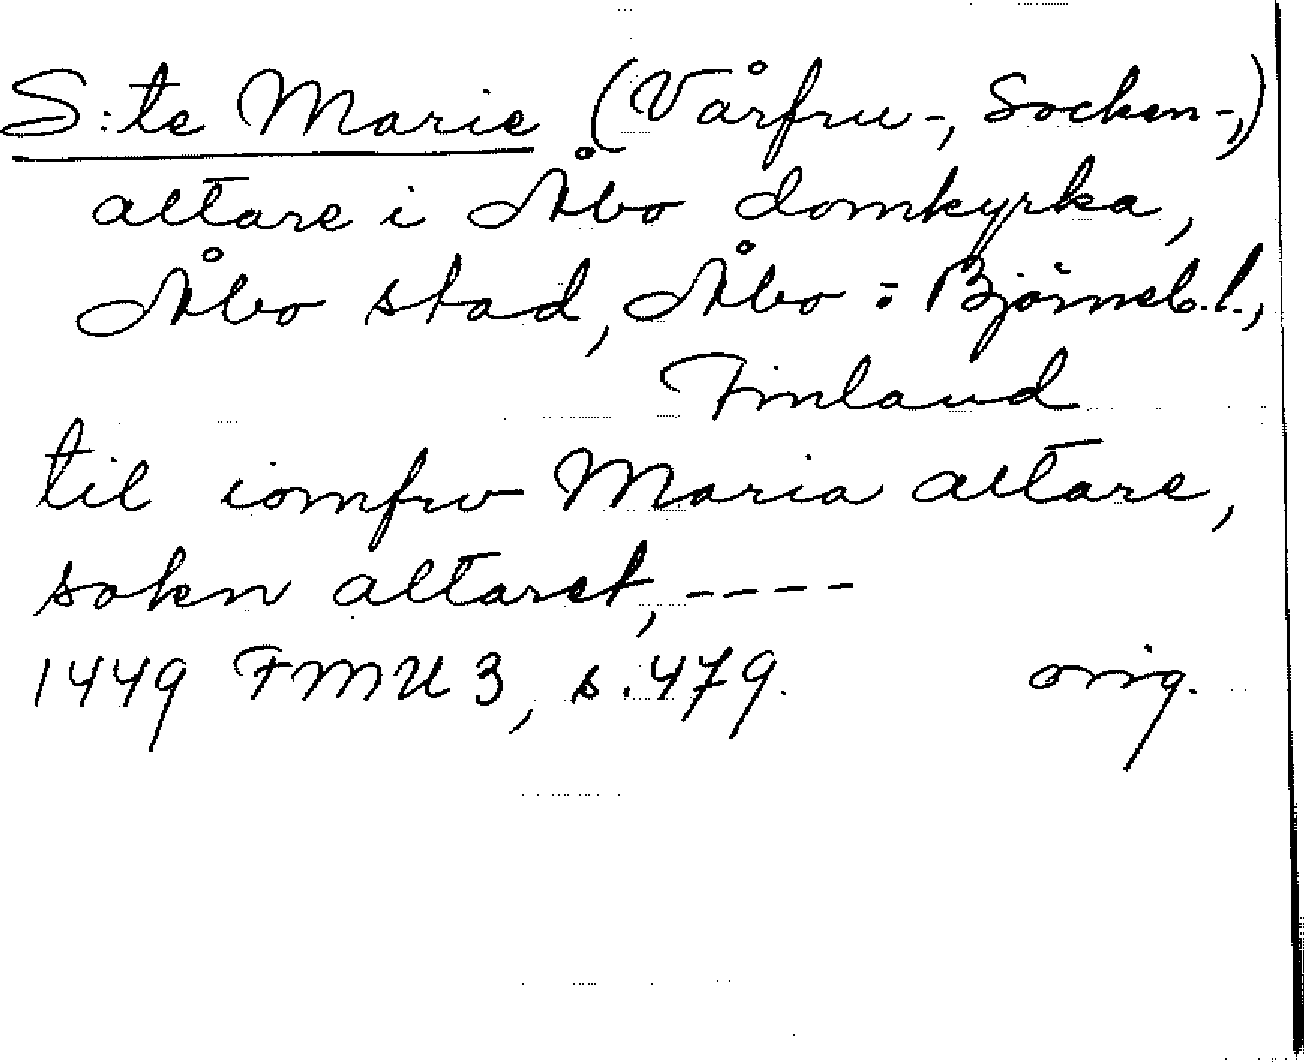 S:te Marie (Vårfru-, Socken-,)
altare i Åbo domkyrka,
Åbo stad, Åbo = Björneb. l.,
Finland
til iomfrv Maria altare,
sokn altaret, ----
1449 FMU 3, s. 479. orig.